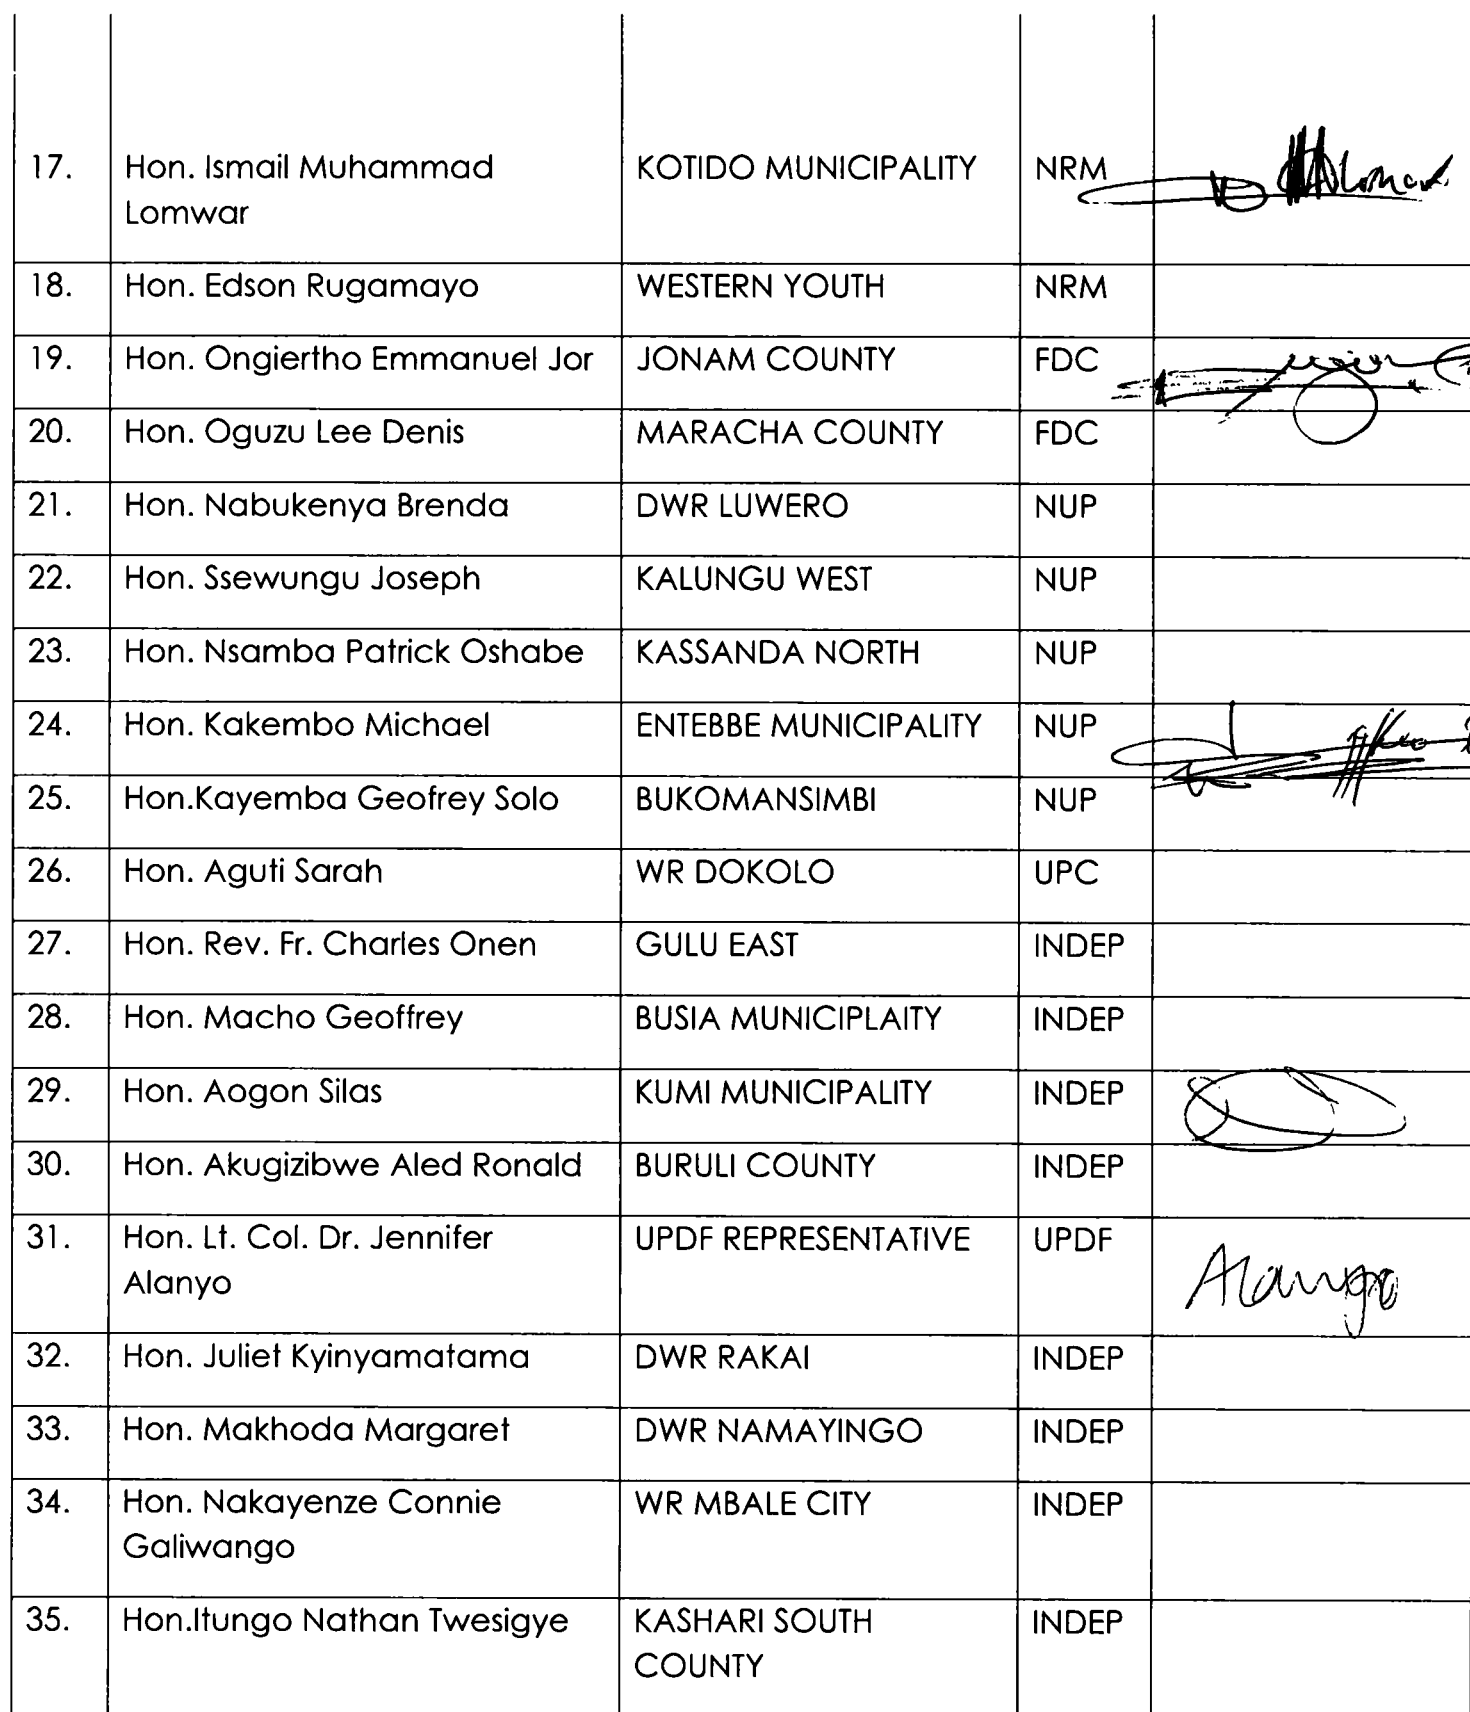 17. Hon. Ismail Muhammad KOTIDO MUNICIPALITY NRM
Lomwar
18. Hon. Edson Rugamayo WESTERN YOUTH NRM
19. Hon. Ongiertho Emmanuel Jor JONAM COUNTY FDC
20. Hon. Oguzu Lee Denis MARACHA COUNTY FDC
21. Hon. Nabukenya Brenda DWR LUWERO NUP
22. Hon. Ssewungu Joseph KALUNGU WEST NUP
23. Hon. Nsamba Patrick Oshabe KASSANDA NORTH NUP
24. Hon. Kakembo Michael ENTEBBE MUNICIPALITY NUP
25. Hon.Kayemba Geofrey Solo BUKOMANSIMBI NUP
26. Hon. Aguti Sarah WR DOKOLO UPC
27. Hon. Rev. Fr. Charles Onen GULU EAST INDEP
28. Hon. Macho Geoffrey BUSIA MUNICIPLAITY INDEP
29. Hon. Aogon Silas KUMI MUNICIPALITY INDEP
30. Hon. Akugizibwe Aled Ronald BURULI COUNTY INDEP
31. Hon. Lt. Col. Dr. Jennifer UPDF REPRESENTATIVE UPDF
Alanyo
32. Hon. Juliet Kyinyamatama DWR RAKAI INDEP
33. Hon. Makhoda Margaret DWR NAMAYINGO INDEP
34. Hon. Nakayenze Connie WR MBALE CITY INDEP
Galiwango
35. Hon.Itungo Nathan Twesigye KASHARI SOUTH INDEP
COUNTY